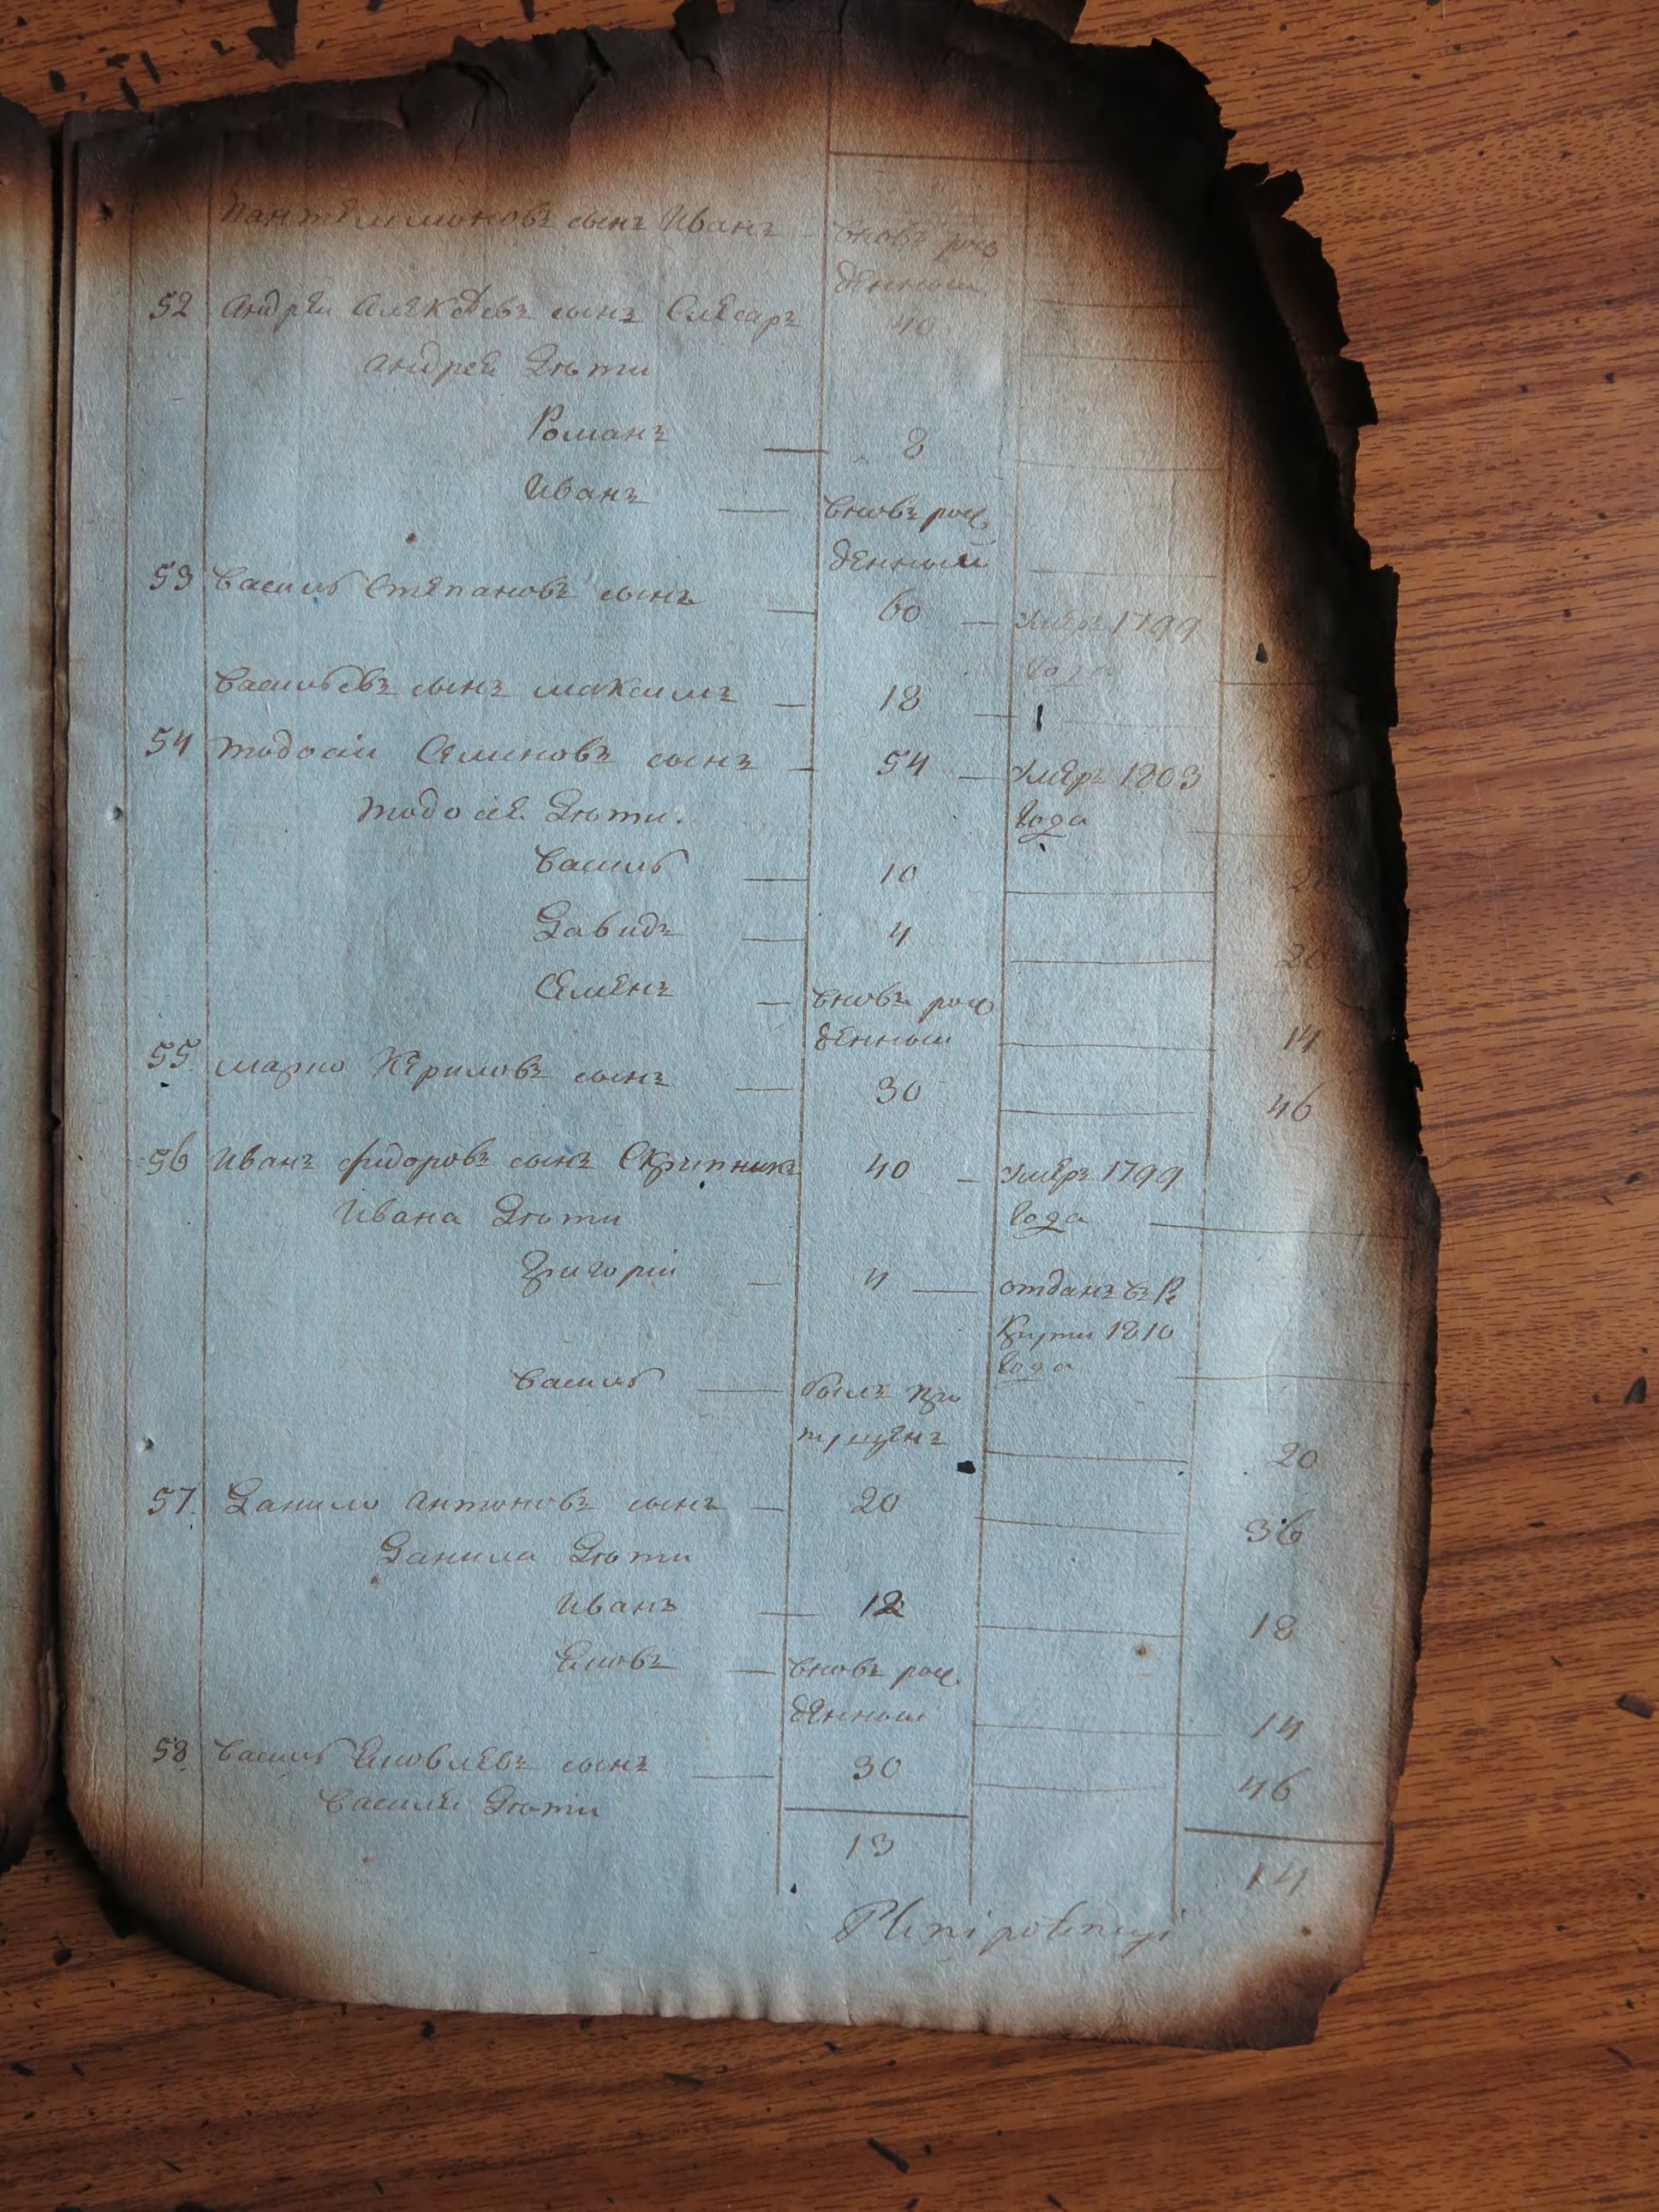 Пантелимоновъ сынъ Иванъ вновь рож
денный
52 Андрей Алексѣевъ сынъ Слесаръ 40
Андрея Дѣти
Романъ 8
Иванъ вновь рож
денный
53 Василь Степановъ сынъ 60 умеръ 1799
года
Васильевъ сынъ Максимъ 18
54 Тодосій Семеновъ сынъ 54 умеръ 1803
Тодосія Дѣти. года
Василь 10
Давидъ 4 20
Семенъ вновь рож
денный 14
55 Марко Кириловъ сынъ 30 46
56 Иванъ Фидоровъ сынъ Скрипникъ 40 умеръ 1799
Ивана Дѣти года
Григорій 4 отданъ въ Ре
круты 1810
года
Василь былъ про
пущенъ 20
57 Данило Антоновъ сынъ 20 36
Данила Дѣти
Иванъ 12 18
Яковъ вновь рож
денный 14
58 Василь Яковлевъ сынъ 30 46
Василя Дѣти
13 14